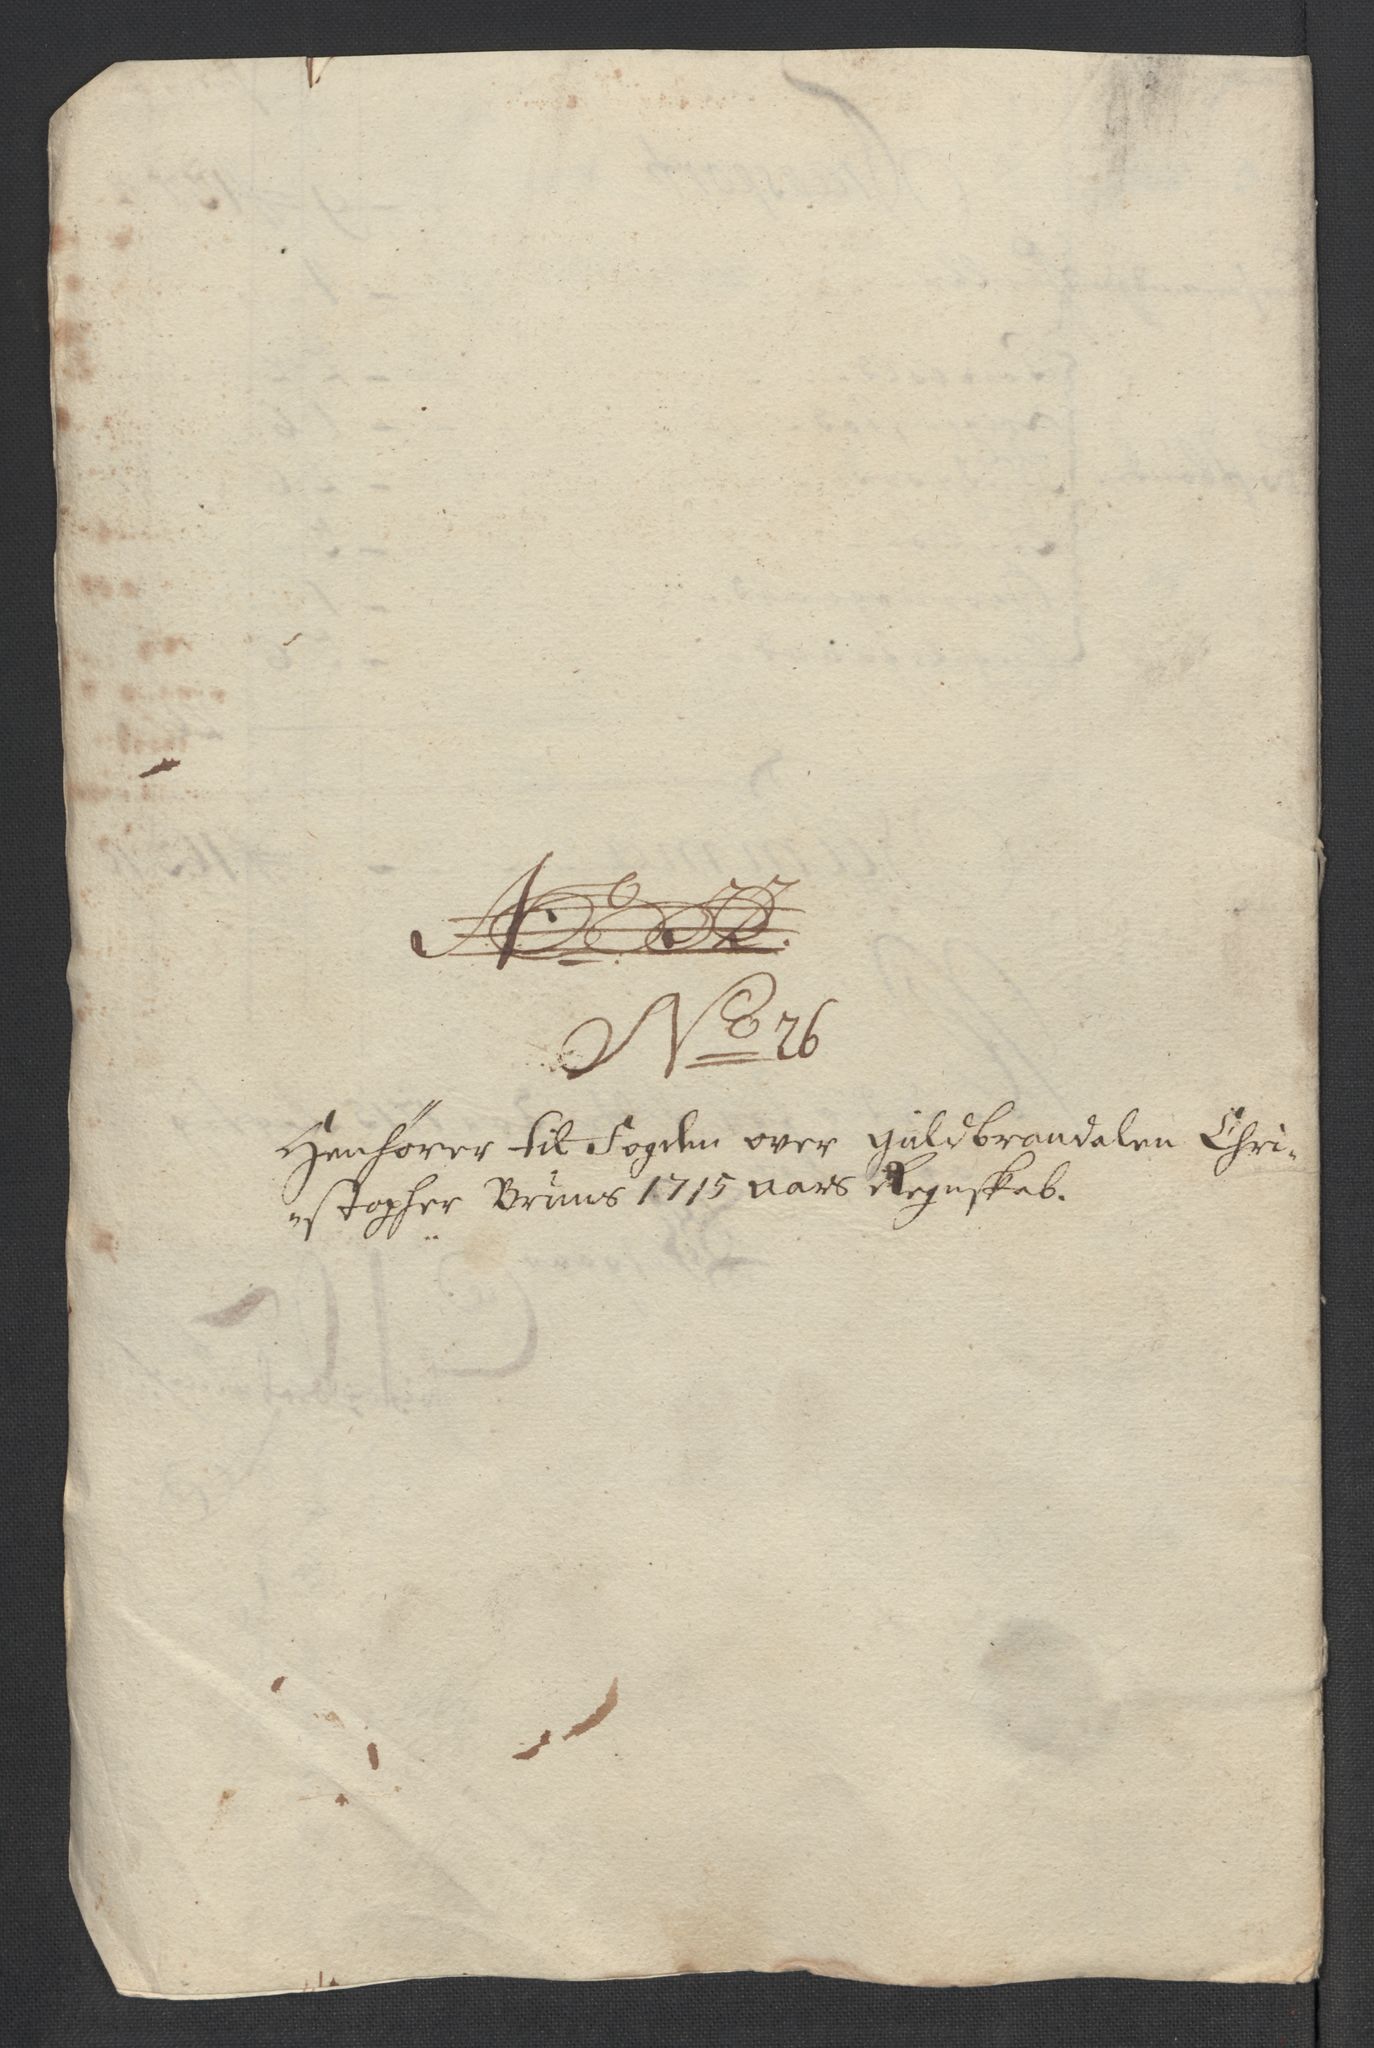 No 26
Henhörer til Fogden over Guldbrandalen Chri-
stopher Bruns 1715 aars Regnskab.